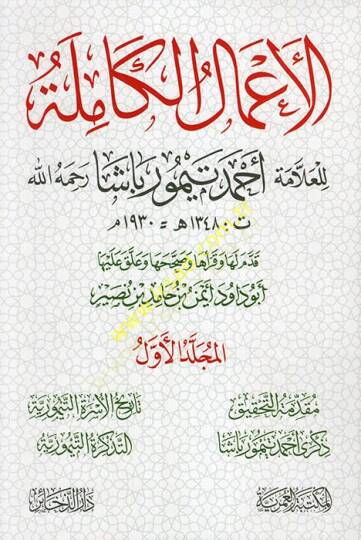 الأعمال الكاملة
للعلامة أحمد تيمور باشا رحمه الله
ت ١٣٤٨هـ = ١٩٣٠م
قدم لها وقرأها وصححها وعلق عليها
أبو داود أيمن بن حامد بن نصير
المجلد الأول
مقدمة التحقيق تاريخ الأسرة التيمورية
ذكرى أحمد تيمور باشا التذكرة التيمورية
المكتبة العمرية دار الذخائر